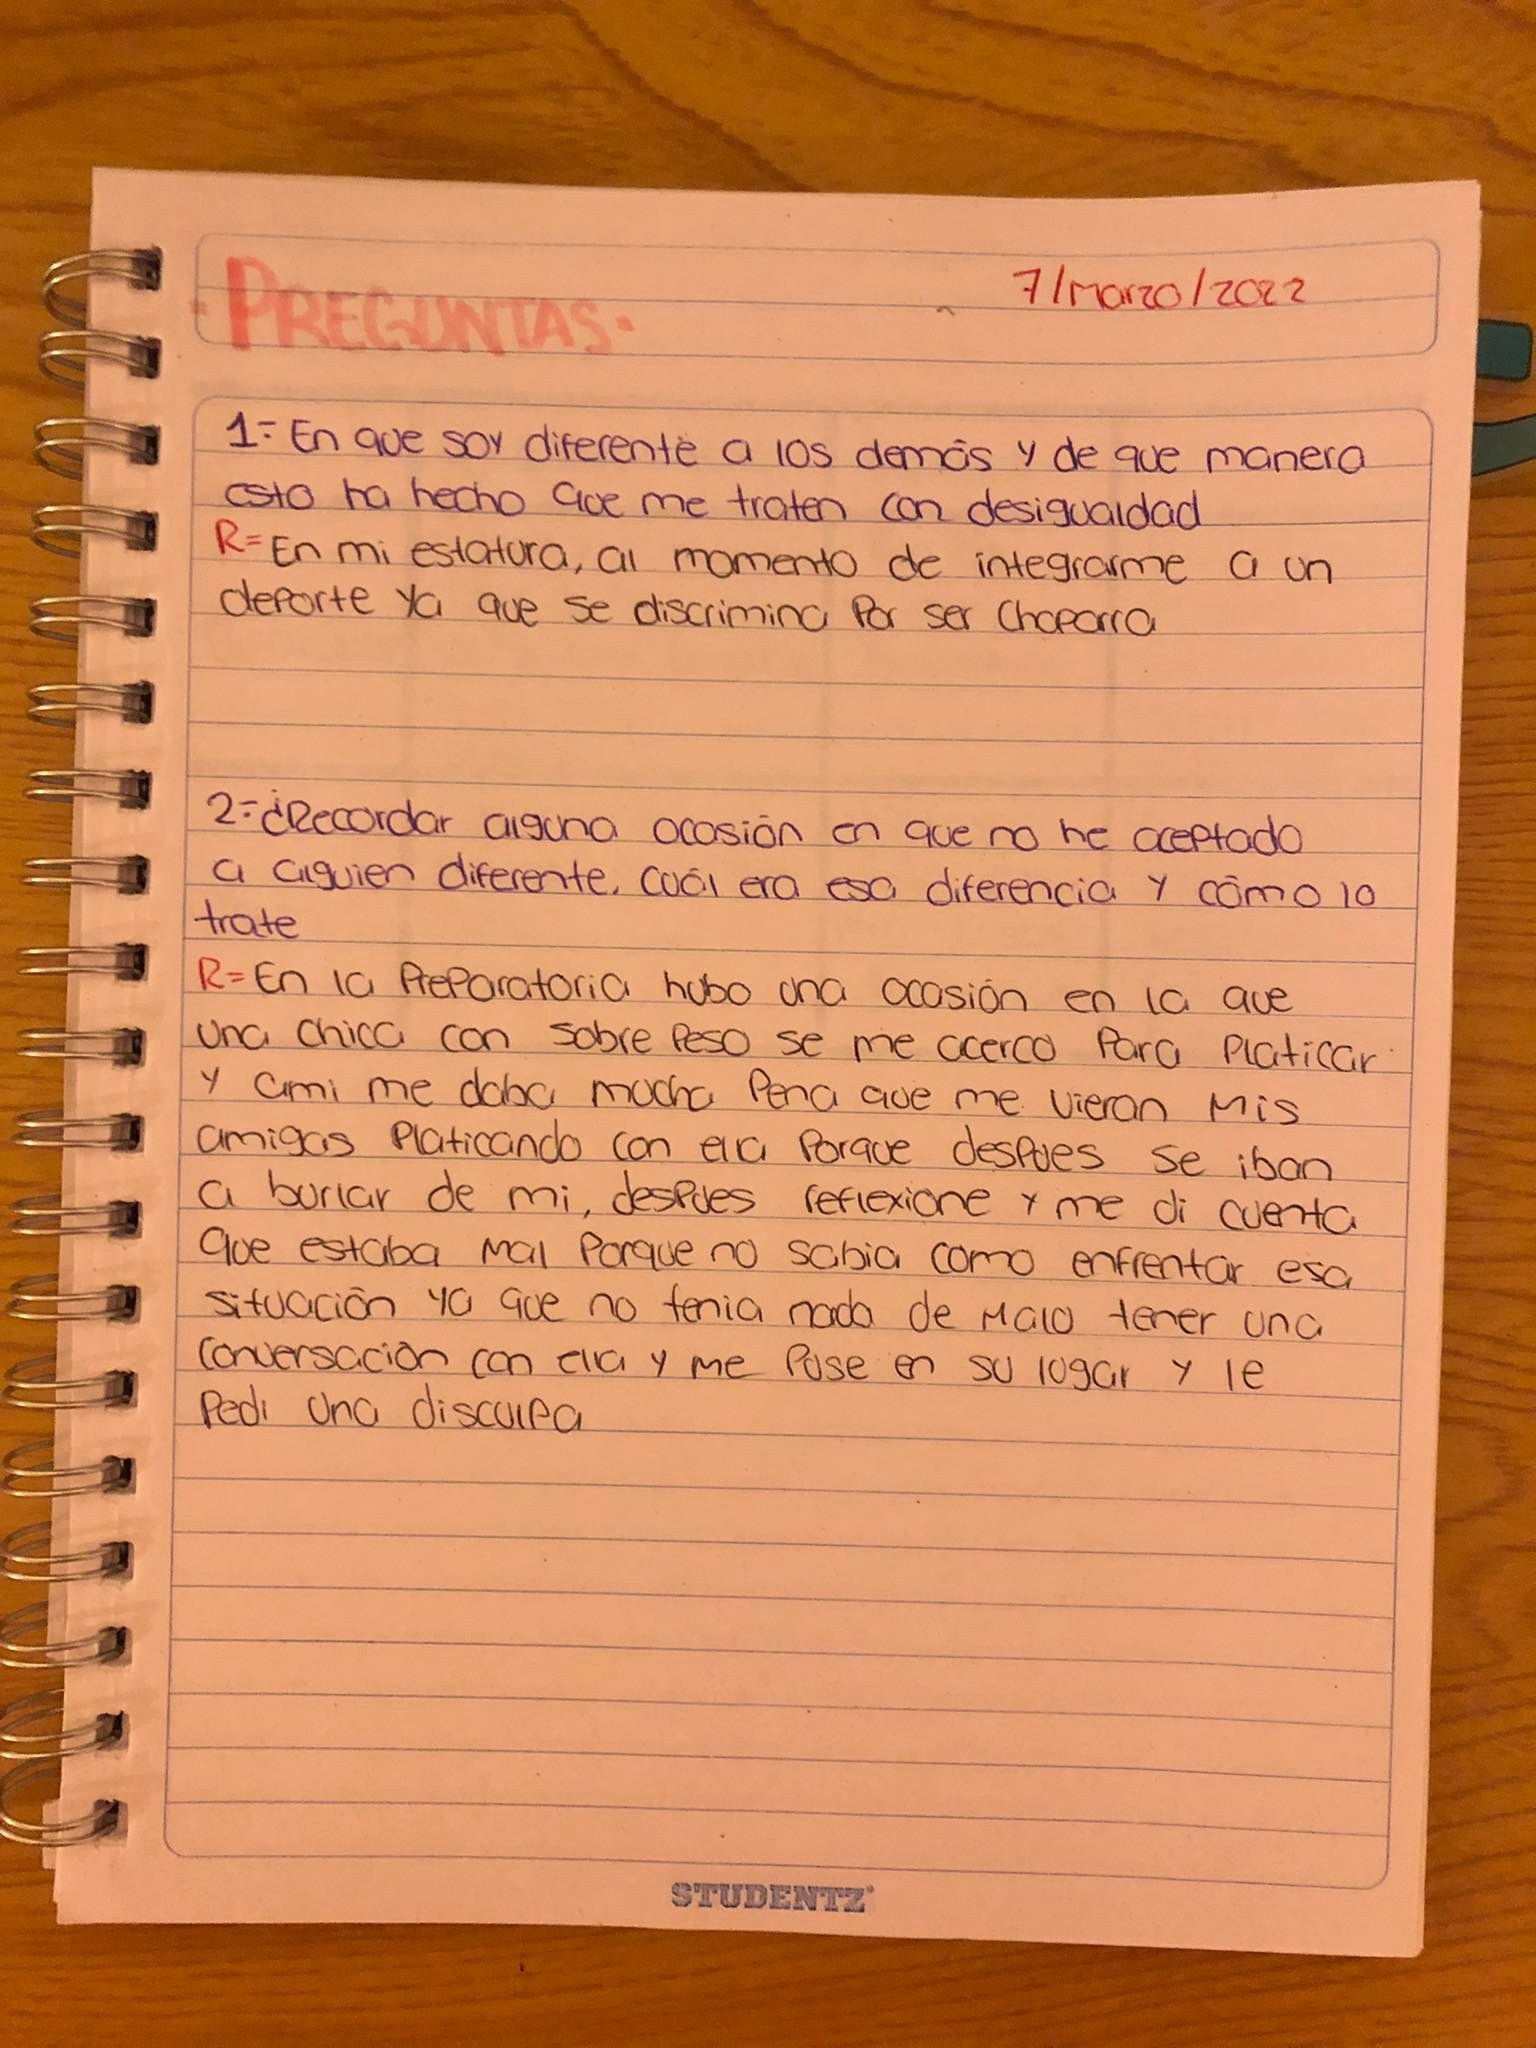 ·PREGUNTAS·
7/Marzo/2022
1.= En que soy diferente a los demás y de que manera
esto ha hecho que me traten con desigualdad
R= En mi estatura, al momento de integrarme a un
deporte ya que se discrimina por ser chaparra
2.= ¿Recordar alguna ocasión en que no he aceptado
a alguien diferente, cuál era esa diferencia y cómo lo
trate
R= En la Preparatoria hubo una ocasión en la que
una chica con sobre peso se me acerco para platicar
y ami me daba mucha pena que me vieran mis
amigas platicando con ella porque despues se iban
a burlar de mi, despues reflexione y me di cuenta
que estaba mal porque no sabia como enfrentar esa
situación ya que no tenia nada de malo tener una
conversación con ella y me puse en su lugar y le
pedi una disculpa
STUDENTZ